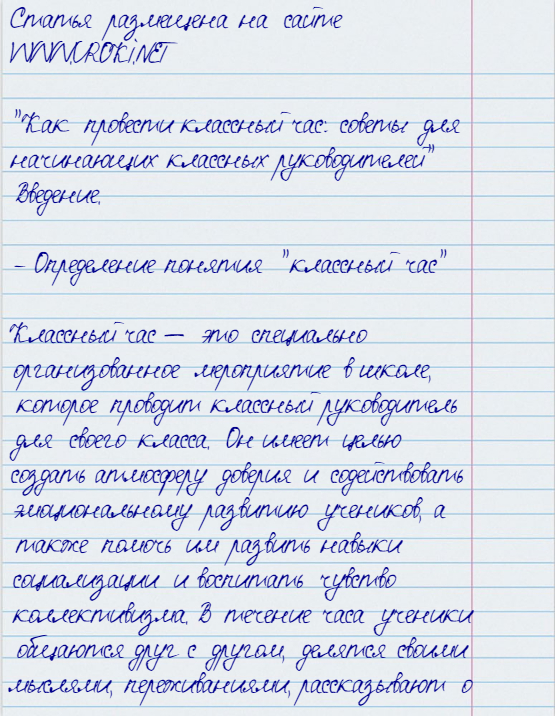 Статья размещена на сайте
WWW.UROKI.NET
"Как провести классный час: советы для
начинающих классных руководителей"
Введение.
- Определение понятия "классный час"
Классный час — это специально
организованное мероприятие в школе,
которое проводит классный руководитель
для своего класса. Он имеет целью
создать атмосферу доверия и содействовать
эмоциональному развитию учеников, а
также помочь им развить навыки
социализации и воспитать чувство
коллективизма. В течение часа ученики
общаются друг с другом, делятся своими
мыслями, переживаниями, рассказывают о